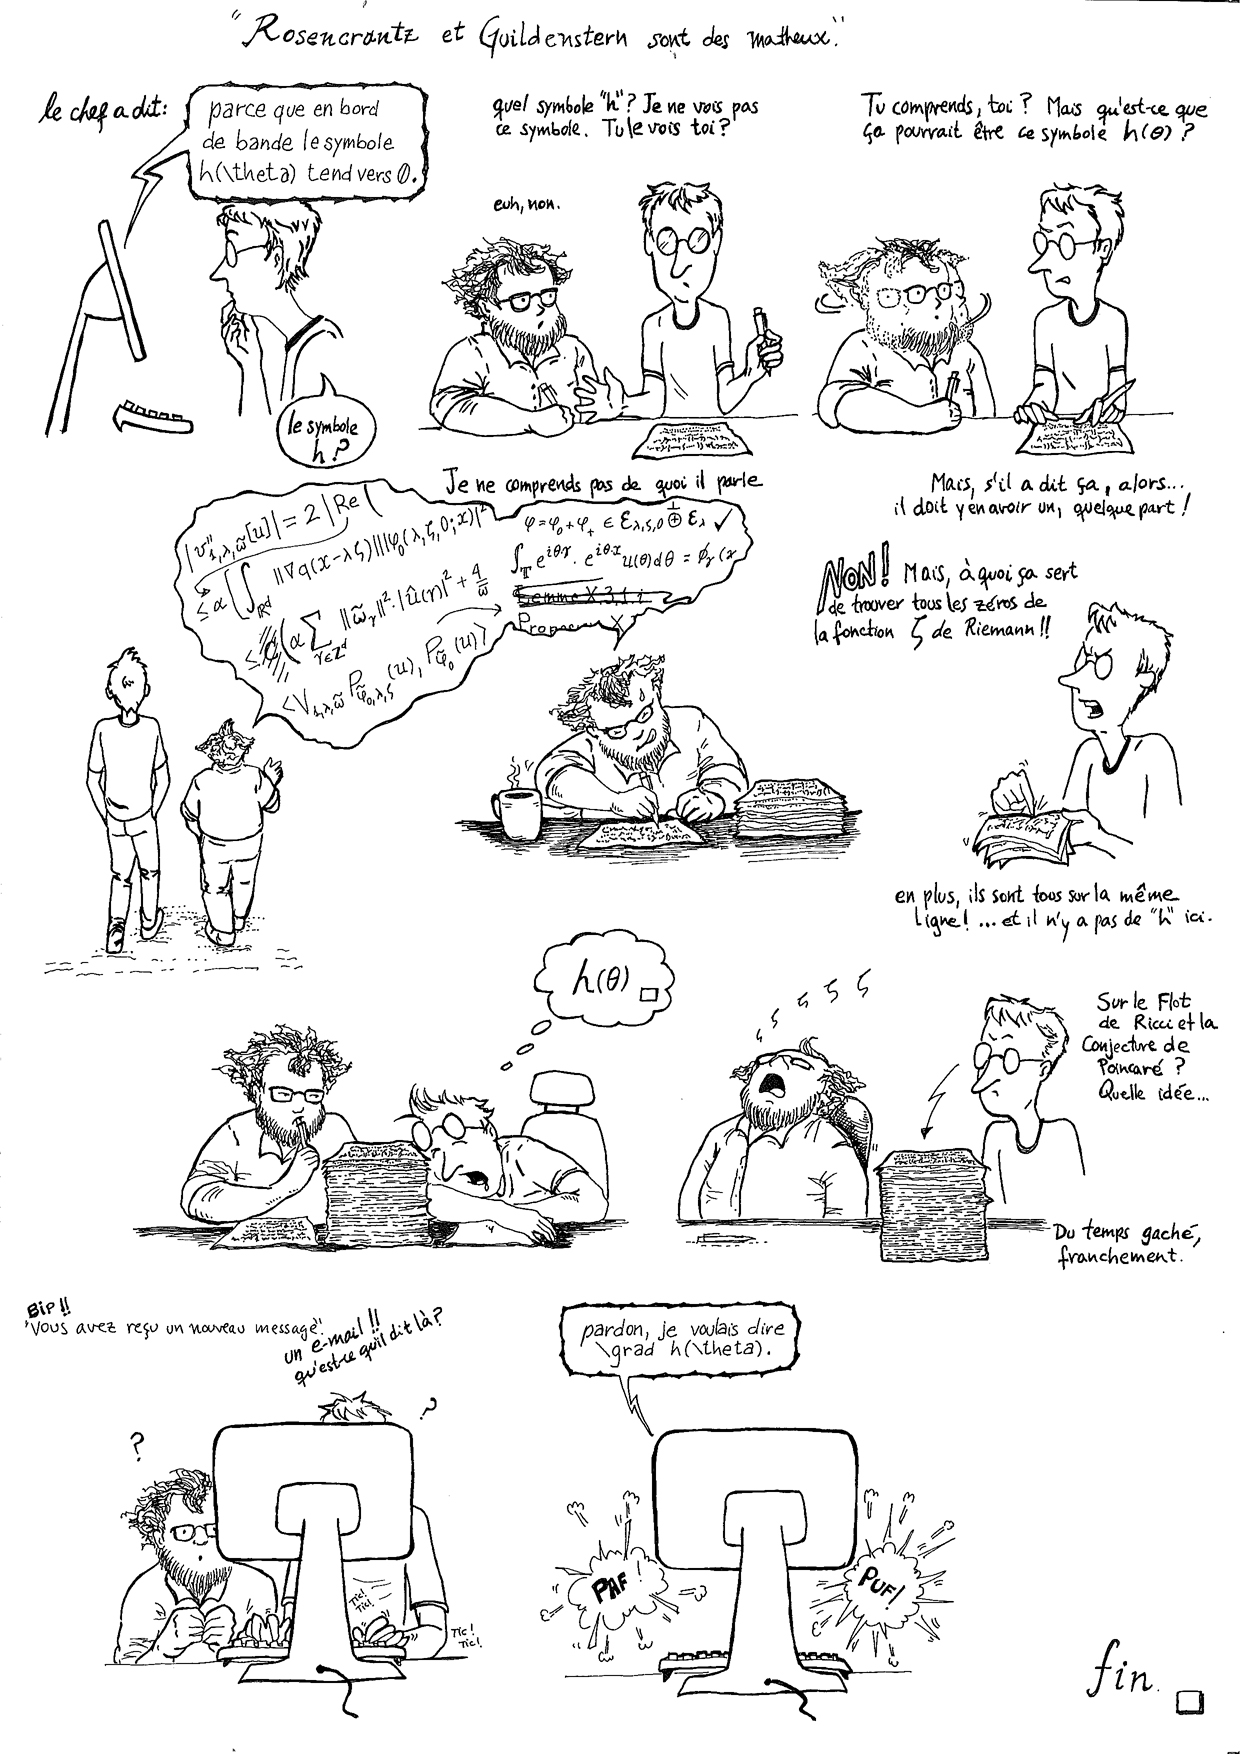 "Rosencrantz et Guildenstern sont des matheux."
le chef a dit:
parce que en bord
de bande le symbole
h(\theta) tend vers 0.
le symbole
h?
quel symbole "h"? Je ne vois pas
ce symbole. Tu le vois toi?
euh, non.
Tu comprends, toi? Mais qu'est-ce que
ça pourrait être ce symbole h(θ)?
Je ne comprends pas de quoi il parle
Mais, s'il a dit ça, alors...
il doit y en avoir un, quelque part!
|v"₁,λ,ω̃[u]| = 2 |Re(
≤ α(∫ℝᵈ ||∇q(x-λζ)|| |φ₀(λ,ζ,0;x)|²
≤ (α Σγ∈ℤᵈ ||ω̃γ||²·|û(γ)|² + 4/ω̃
<V₁,λ,ω̃ Pφ̃₀,λ,ζ(u), Pφ̃₀(u)>
φ=φ₀+φ₊ ∈ Ɛλ,ζ,0 ⊕ Ɛλ ✓
∫𝕋 e^{iθγ}·e^{iθx} u(θ)dθ = ϕγ(x
Lemme X.3.1.i
NON! Mais, à quoi ça sert
de trouver tous les zéros de
la fonction ζ de Riemann!!
en plus, ils sont tous sur la même
ligne! ...et il n'y a pas de "h" ici.
h(θ) □
ζ ζ ζ ζ ζ
Sur le Flot
de Ricci et la
Conjecture de
Poincaré?
Quelle idée...
Du temps gaché,
franchement.
BIP!!
"Vous avez reçu un nouveau message".
un e-mail!!
qu'est-ce qu'il dit là?
?
?
Tic!
Tic!
Tic!
Tic!
pardon, je voulais dire
\grad h(\theta).
PAF
PUF!
fin. □